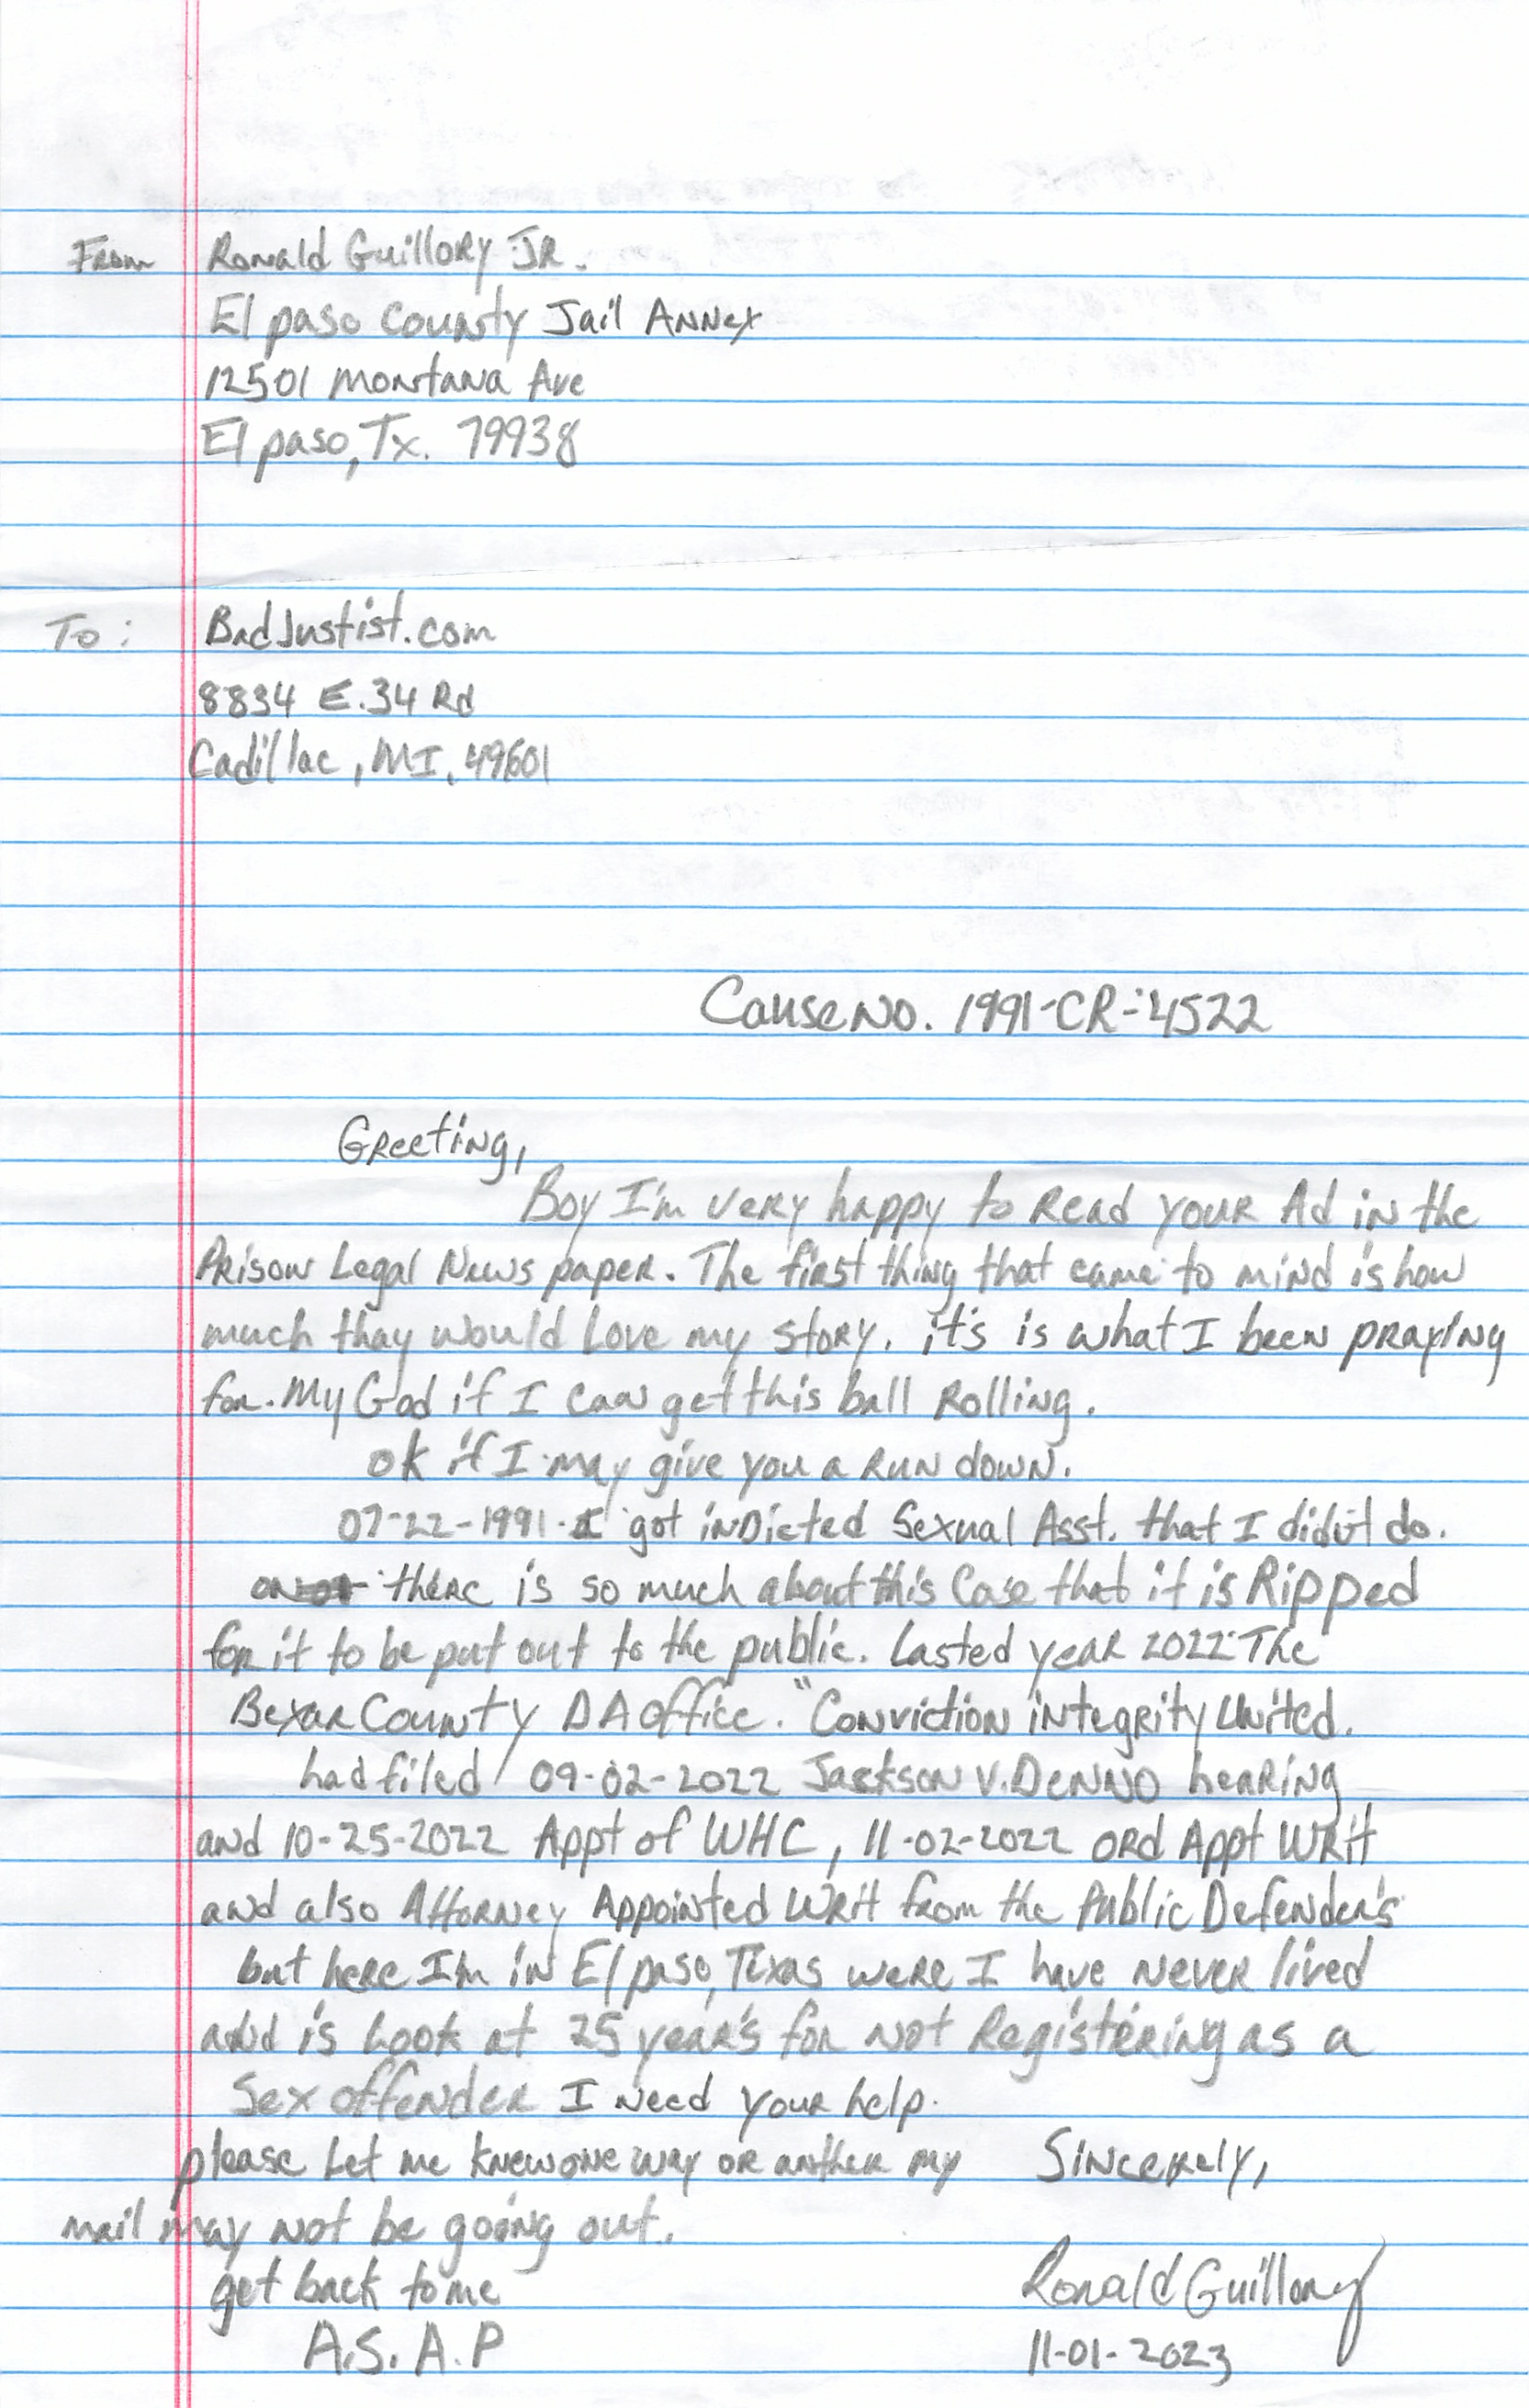 From Ronald Guillory JR.
El paso County Jail Annex
12501 Montana Ave
El paso, Tx. 79938
To: BadJustist.com
8834 E.34 Rd
Cadillac, MI. 49601
Cause No. 1991-CR-4522
Greeting,
Boy I'm very happy to Read your Ad in the
Prison Legal News paper. The first thing that came to mind is how
much thay would Love my story. it's is what I been praying
for. My God if I can get this ball Rolling.
ok if I may give you a Run down.
07-22-1991 I got inDicted Sexual Asst. that I didn't do.
there is so much about this Case that it is Ripped
for it to be put out to the public. Lasted year 2022 The
Bexar County DA office. "Conviction integrity United.
had filed 09-02-2022 Jackson v. Denno hearing
and 10-25-2022 Appt of WHC, 11-02-2022 ord Appt Writ
and also Attorney Appointed Writ from the Public Defender's
but here I'm in El paso, Texas were I have never lived
and is Look at 25 year's for not Registering as a
Sex offender I need your help.
please Let me knew one way or anther my Sincerely,
mail may not be going out.
get back to me Ronald Guillory
A.S.A.P 11-01-2023